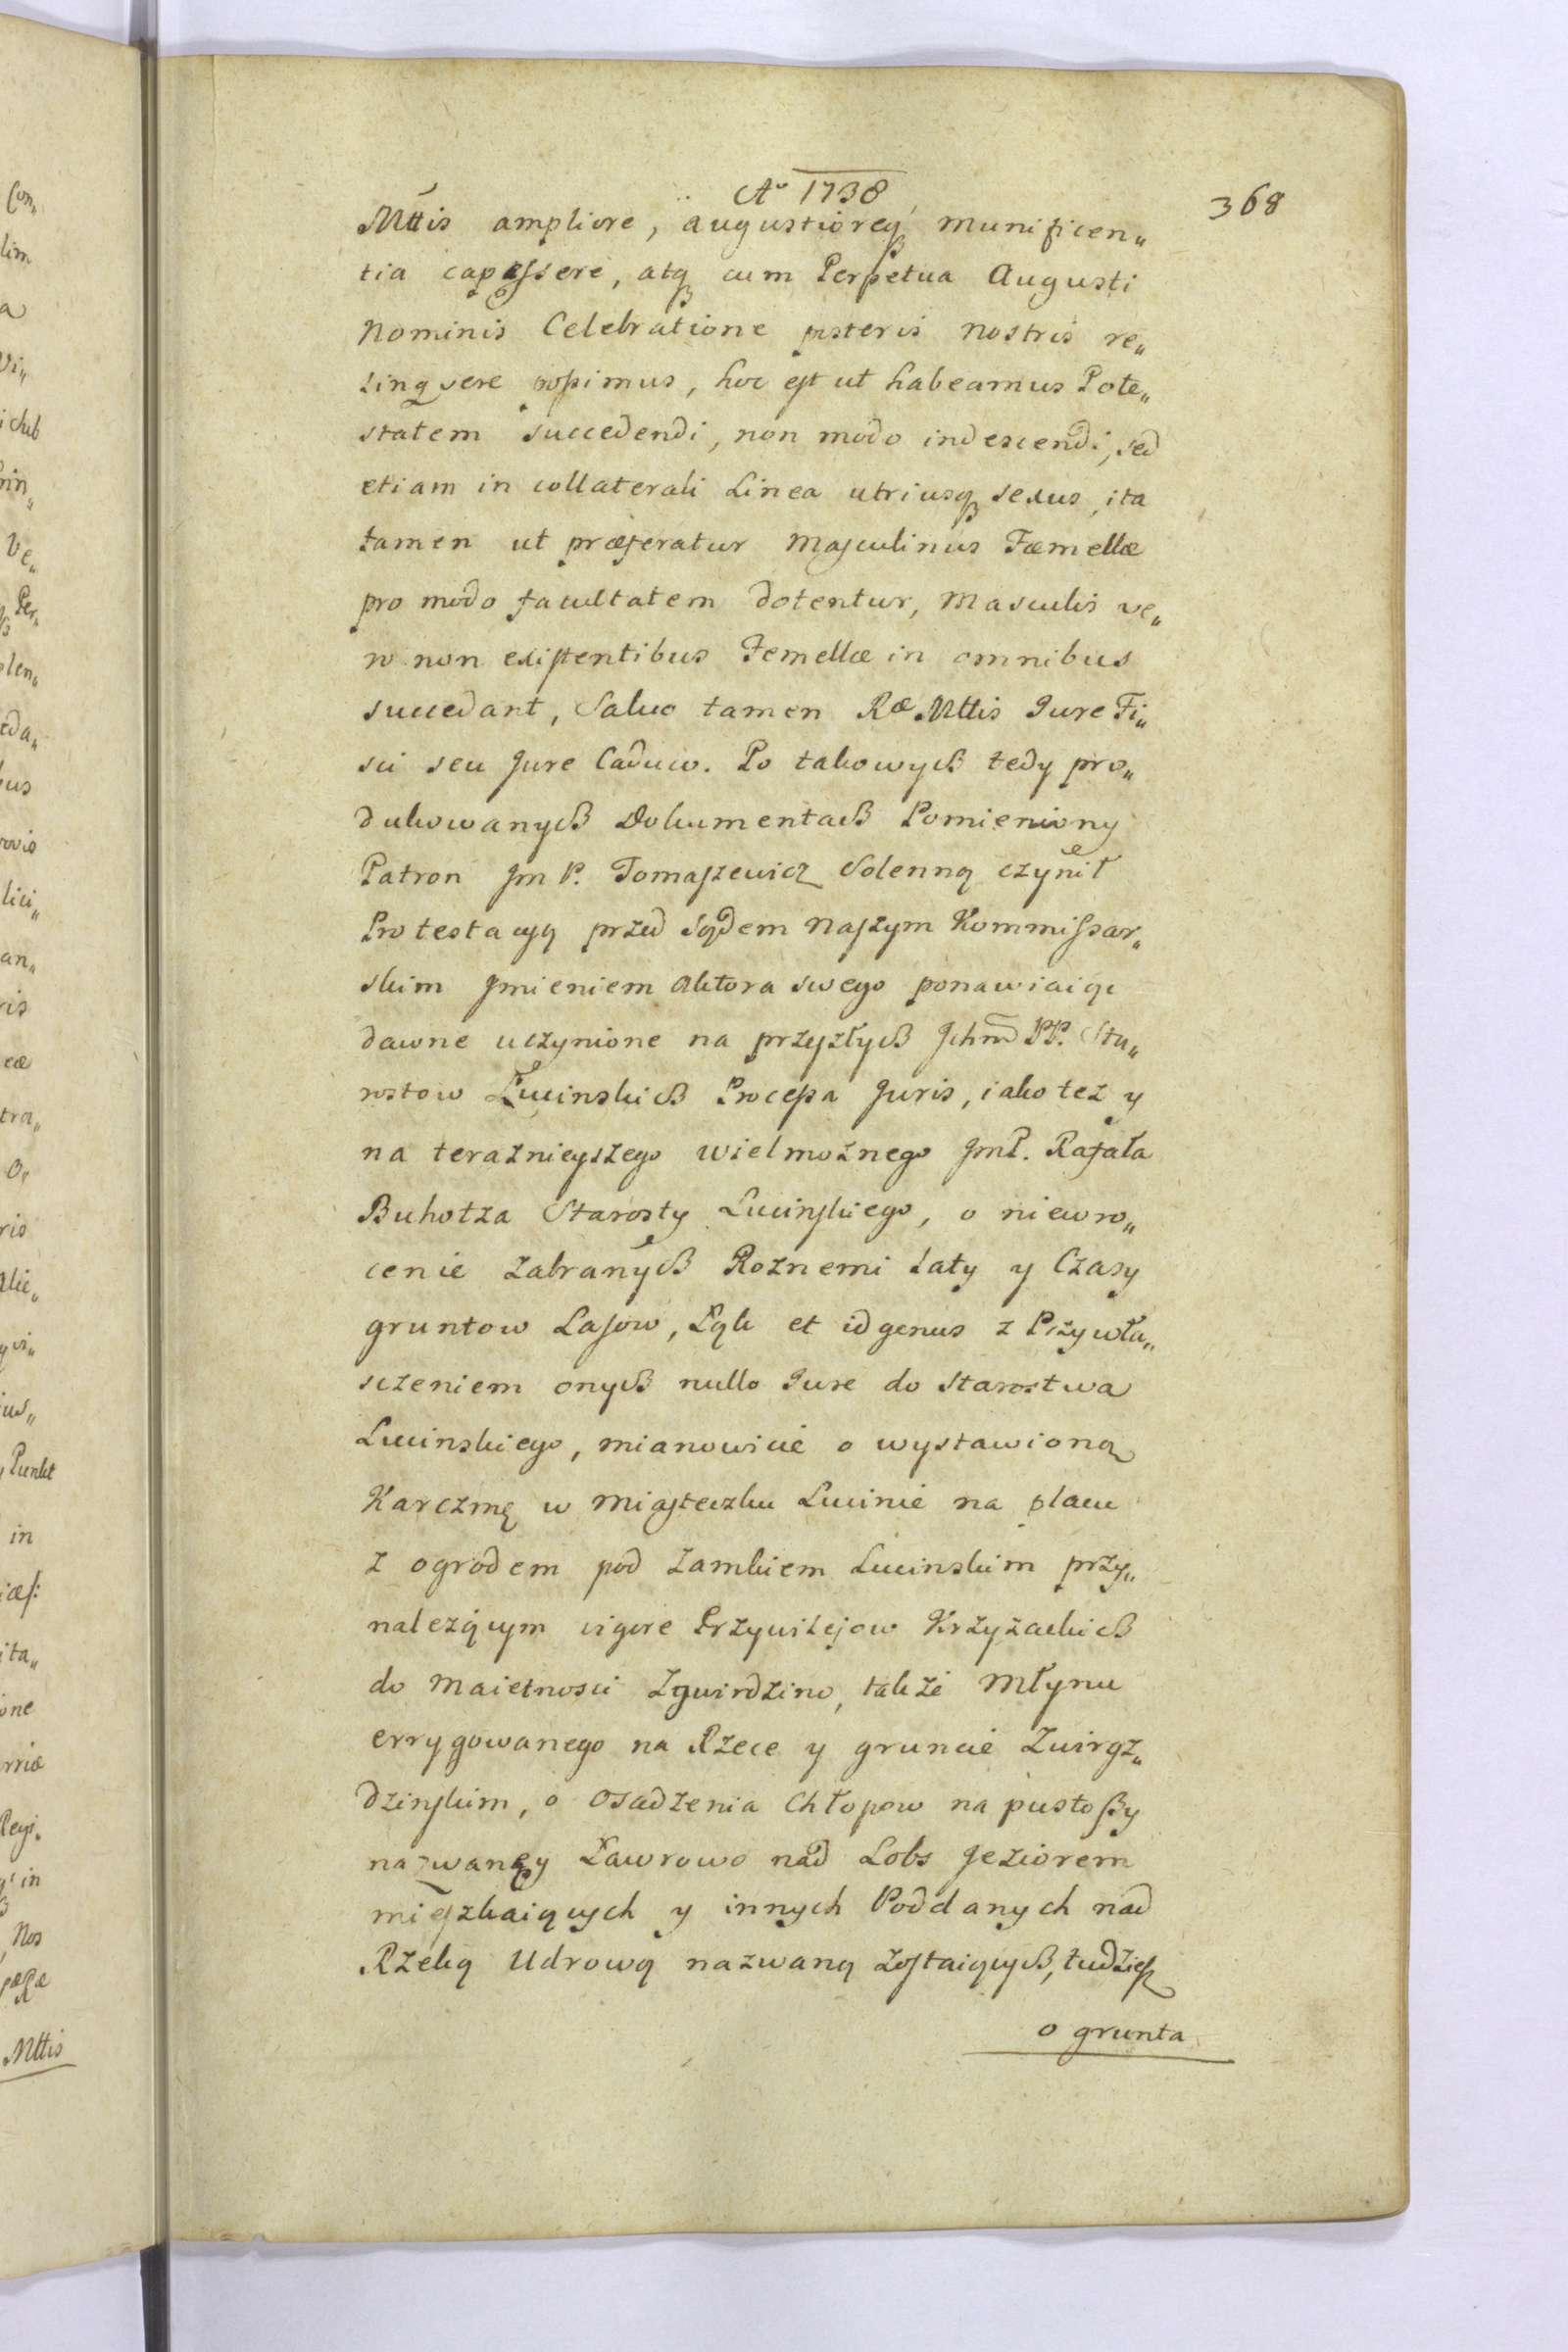 Aº 1738
368
Mttis ampliore, augustioreq munificen„
tia capessere, atq cum Perpetua Augusti
Nominis Celebratione posteris nostris re„
linqvere possimus, hoc est ut habeamus Pote„
statem succedendi, non modo indescendi, sed
etiam in collaterali Linea utriusq sexus, ita
tamen ut præferatur Masculinus Fæmellæ
pro modo facultatem dotentur, Masculis ve„
ro non existentibus Femellæ in omnibus
succedant, Salvo tamen Ræ Mttis Jure Fi„
sci seu Jure Caduco. Po takowych tedy pro„
dukowanych Dokumentach Pomieniony
Patron Jm P. Tomaszewicz Solenną czynił
Protestacyą przed Sądem Naszym Kommissar„
skim Jmieniem Aktora swego ponawiaiąc
dawne uczynione na przyszłych Jchm PP. Sta„
rostow Lucinskich Procesa Juris, iako tez y
na teraznieyszego Wielmoznego JmP. Rafała
Buhołza Starosty Lucinskiego, o niewro„
cenie zabranych Roznemi Laty y Czasy
gruntow Lasow, Łąk et id genus z Przywła„
sczeniem onych nullo Jure do Starostwa
Lucinskiego, mianowicie o wystawioną
Karczmę w Miasteczku Lucinie na placu
z ogrodem pod Zamkiem Lucinskim przy„
nalezącym vigore Przywilejow Krzyżackich
do Maietnosci Zgwirdzino, także Młynu
errygowanego na Rzece y gruncie Zwirgz„
dzinskim, o Osadzenia Chłopow na pustoszy
nazwaney Ławrowo nad Lobs Jeziorem
mięszkaiących y innych Poddanych nad
Rzeką Udrową nazwaną zostaiących, tudziesz
o grunta